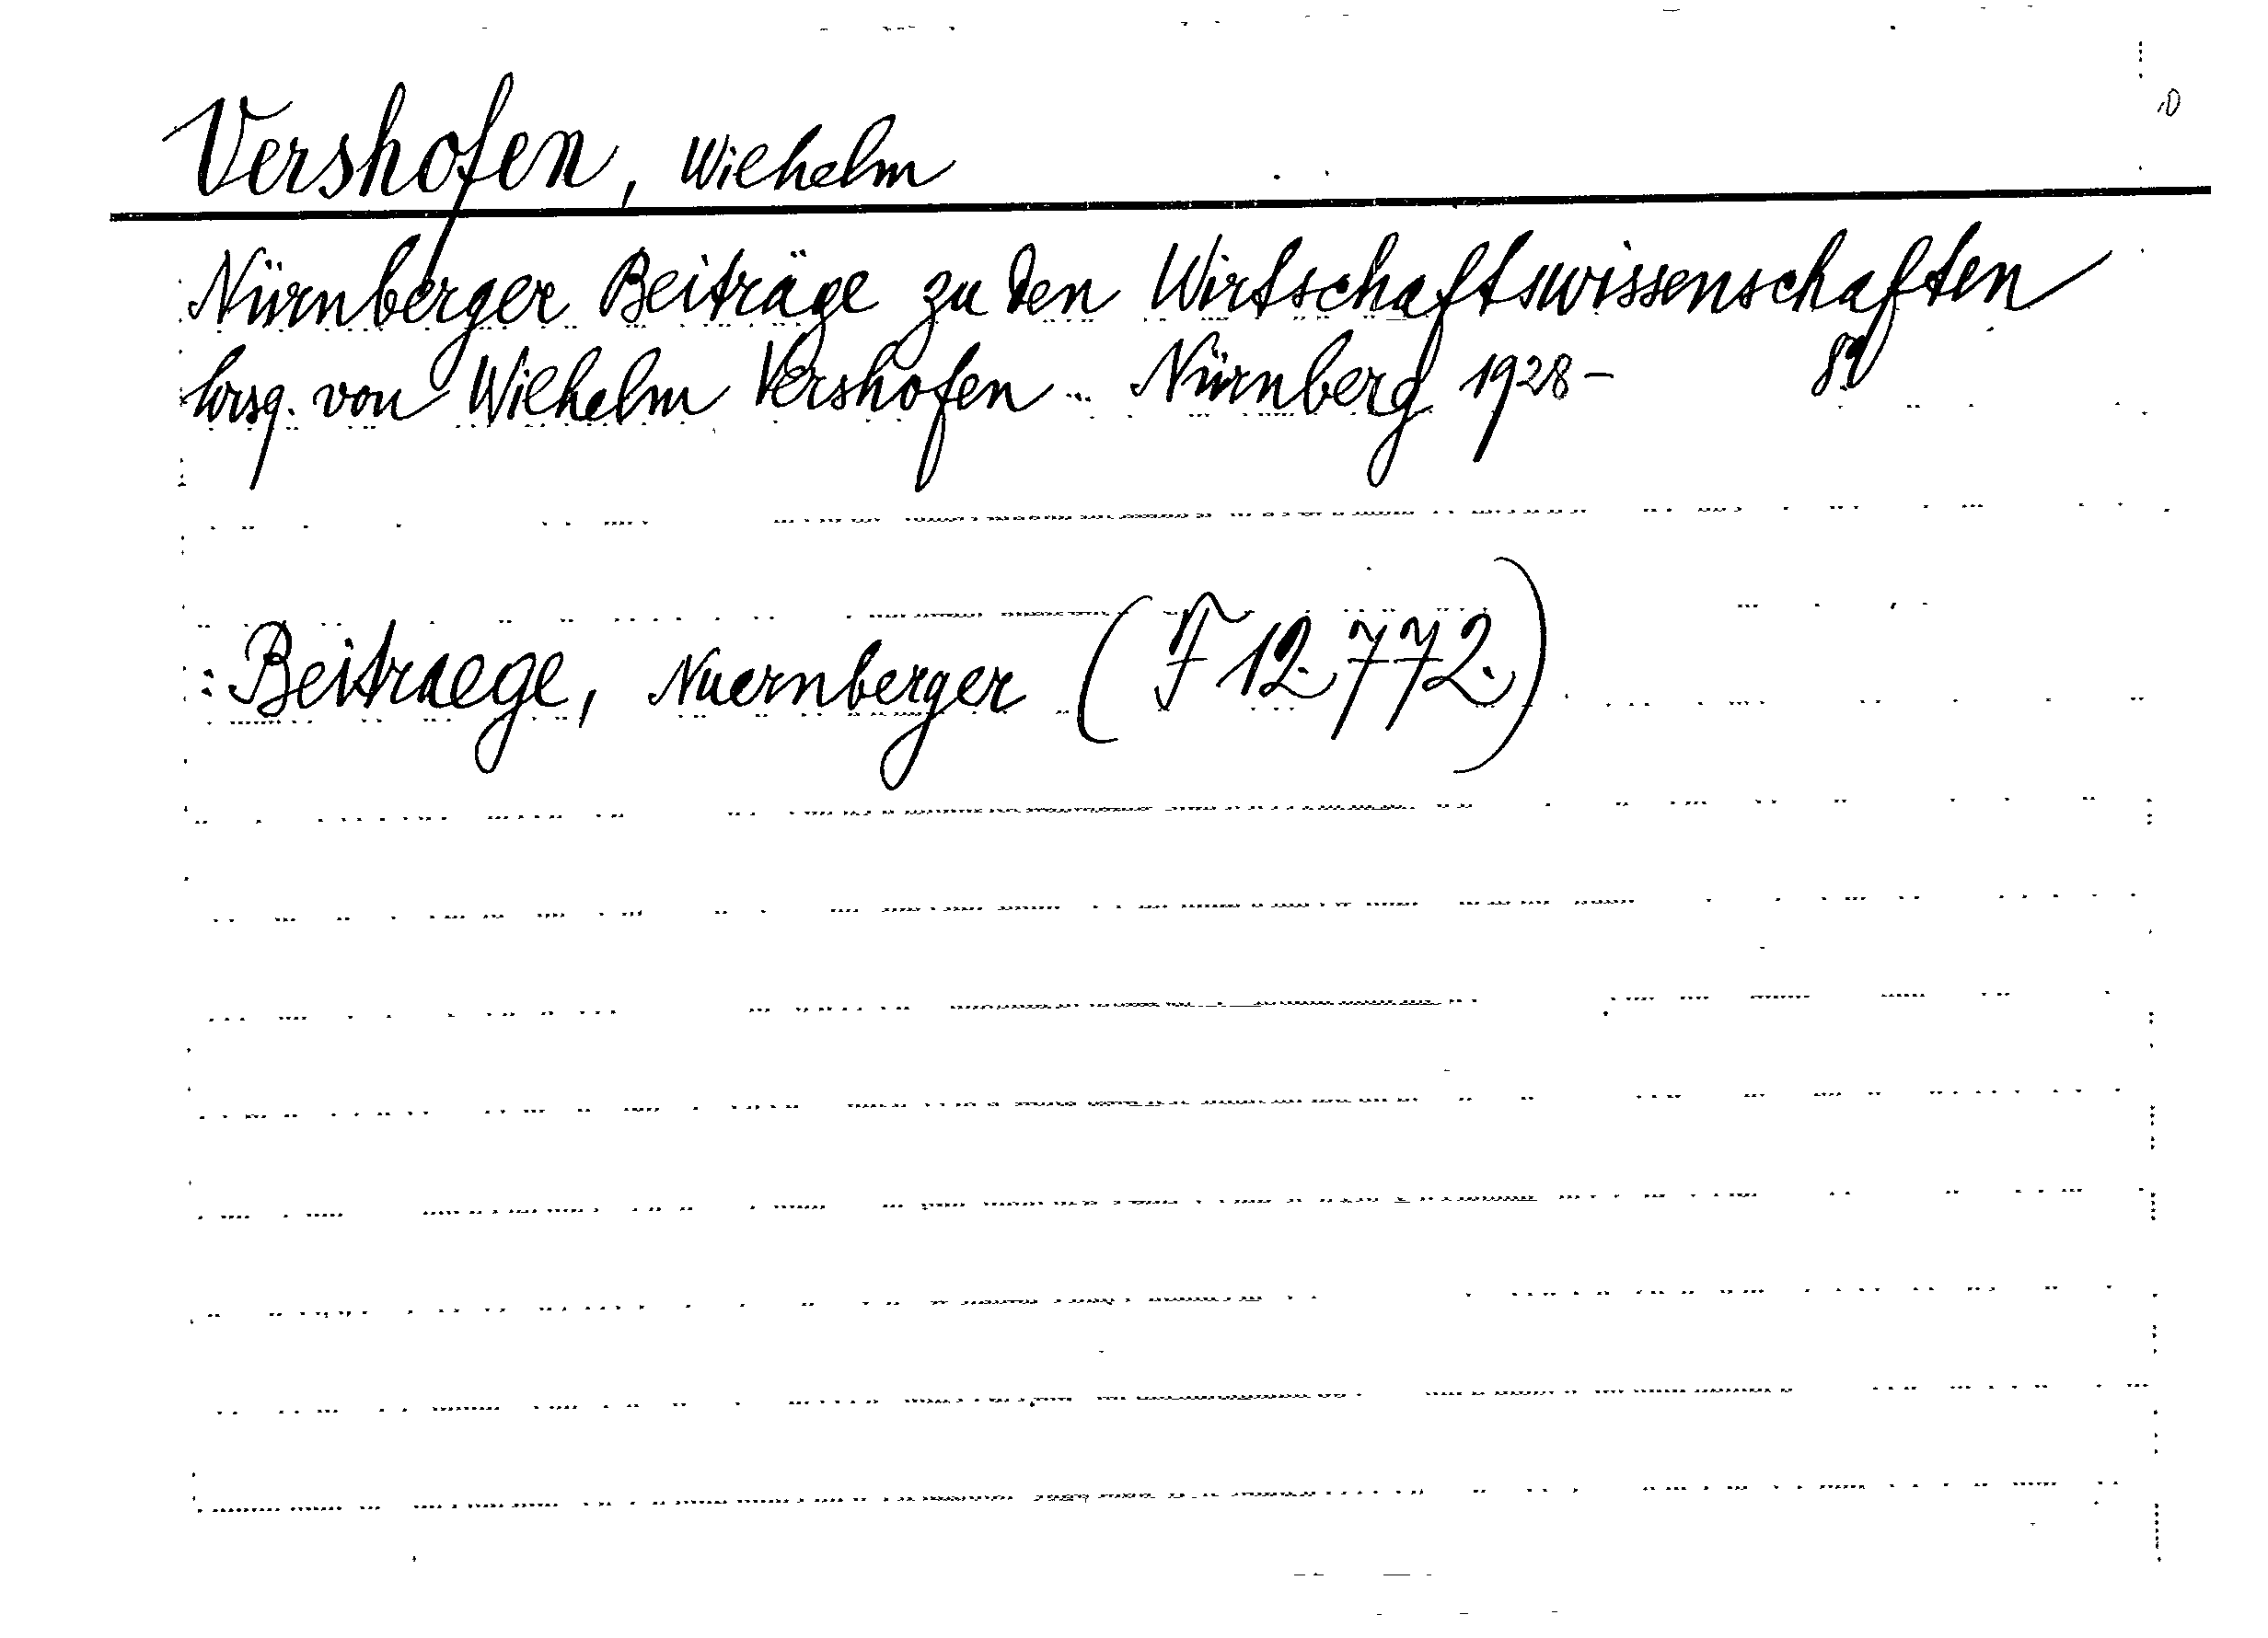 Vershofen, Wilhelm
Nürnberger Beiträge zu den Wirtschaftswissenschaften
hrsg. von Wilhelm Vershofen... Nürnberg 1928- 8º
: Beitraege, Nuernberger (F 12.772.)